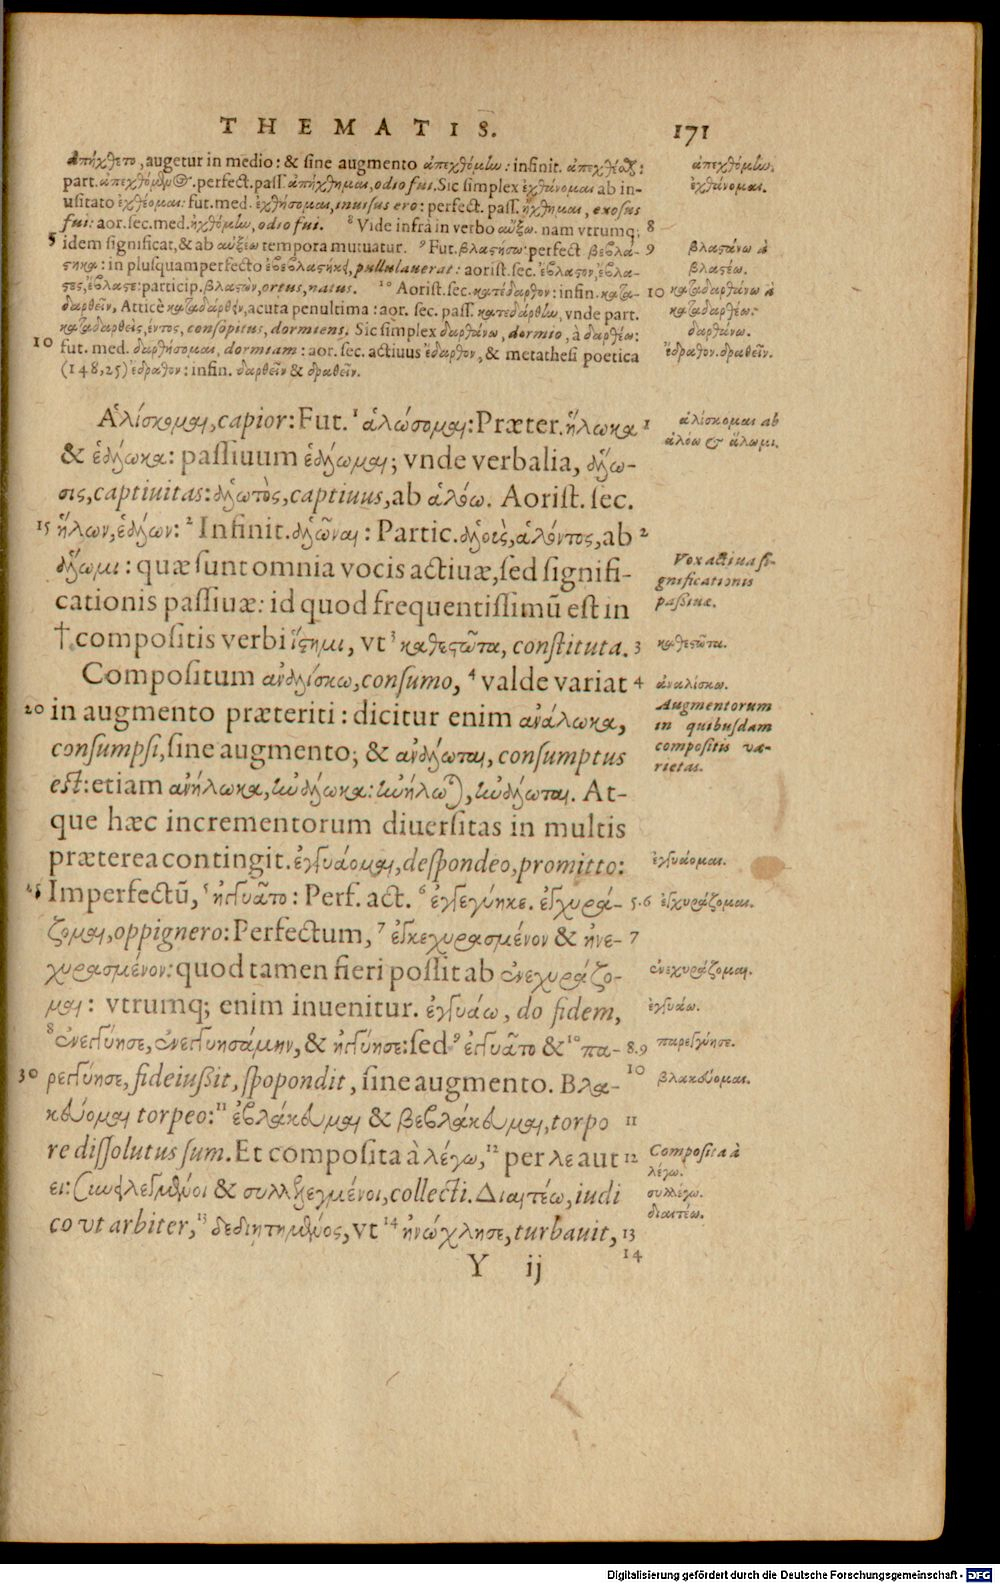 THEMATIS. 171
ἀπήχθετο, augetur in medio: & sine augmento ἀπεχθόμην: infinit. ἀπεχθέσθαι:
part. ἀπεχθόμενος. perfect. pass. ἀπήχθημαι, odio fui. Sic simplex ἐχθάνομαι ab in-
usitato ἐχθέομαι: fut. med. ἐχθήσομαι, inuisus ero: perfect. pass. ἤχθημαι, exosus
fui: aor. sec. med. ἠχθόμην, odio fui. 8 Vide infrà in verbo αὔξω. nam vtrumq; 8
5 idem significat, & ab αὐξέω tempora mutuatur. 9 Fut. βλαστήσω: perfect βεβλά- 9
στηκα: in plusquamperfecto ἐβεβλαστήκει, pullulauerat: aorist. sec. ἔβλαστον, ἔβλα-
στες, ἔβλαστε: particip. βλαστὼν, ortus, natus. 10 Aorist. sec. κατέδαρθον: infin. κατα- 10
δαρθεῖν, Atticè καταδάρθειν, acuta penultima: aor. sec. pass. κατεδάρθην, vnde part.
καταδαρθεὶς, έντος, consopitus, dormiens. Sic simplex δαρθάνω, dormio, à δαρθέω:
10 fut. med. δαρθήσομαι, dormiam: aor. sec. actiuus ἔδαρθον, & metathesi poetica
(148,25) ἔδραθον: infin. δαρθεῖν & δραθεῖν.
ἀπεχθόμην.
ἐχθάνομαι.
βλαστάνω à
βλαστέω.
καταδαρθάνω à
καταδαρθέω:
δαρθάνω.
ἔδραθον. δραθεῖν.
Ἁλίσκομαι, capior: Fut. 1 ἁλώσομαι: Præter. ἥλωκα 1
& ἑάλωκα: passiuum ἑάλωμαι; vnde verbalia, ἅλω-
σις, captiuitas: ἁλωτὸς, captiuus, ab ἁλόω. Aorist. sec.
15 ἥλων, ἑάλων: 2 Infinit. ἁλῶναι: Partic. ἁλοὺς, ἁλόντος, ab 2
ἅλωμι: quæ sunt omnia vocis actiuæ, sed signifi-
cationis passiuæ: id quod frequentissimū est in
† compositis verbi ἵστημι, vt 3 καθεστῶτα, constituta. 3
Compositum ἀναλίσκω, consumo, 4 valde variat 4
20 in augmento præteriti: dicitur enim ἀνάλωκα,
consumpsi, sine augmento; & ἀνάλωται, consumptus
est: etiam ἀνήλωκα, ἠνάλωκα: ἀνήλωται, ἠνάλωται. At-
que hæc incrementorum diuersitas in multis
præterea contingit. ἐγγυάομαι, despondeo, promitto:
25 Imperfectū, 5 ἠγγυᾶτο: Perf. act. 6 ἐγγεγύηκε. ἐγχυρά- 5.6
ζομαι, oppignero: Perfectum, 7 ἐγκεχυρασμένον & ἠνε- 7
χυρασμένον: quod tamen fieri possit ab ἐνεχυράζο-
μαι: vtrumq; enim inuenitur. ἐγγυάω, do fidem,
8 ἐνεγγύησε, ἐνεγγυησάμην, & ἠγγύησε: sed 9 ἐγγυᾶτο & 10 πα- 8.9
30 ρεγγύησε, fideiussit, spopondit, sine augmento. Βλα- 10
κεύομαι torpeo: 11 ἐβλάκευμαι & βεβλάκευμαι, torpo 11
re dissolutus sum. Et composita à λέγω, 12 per λε aut 12
ει: συνειλεγμένοι & συλλελεγμένοι, collecti. Διαιτέω, iudi
co vt arbiter, 13 δεδιῃτημένος, vt 14 ἠνώχλησε, turbauit, 13
Y ij 14
ἁλίσκομαι ab
ἁλόω & ἅλωμι.
Vox actiua si-
gnificationis
passiuæ.
καθεστῶτα.
ἀναλίσκω.
Augmentorum
in quibusdam
compositis va-
rietas.
ἐγγυάομαι.
ἐγχυράζομαι.
ἐνεχυράζομαι.
ἐγγυάω.
παρεγγύησε.
βλακεύομαι.
Composita à
λέγω.
συλλέγω.
διαιτέω.
Digitalisierung gefördert durch die Deutsche Forschungsgemeinschaft - DFG